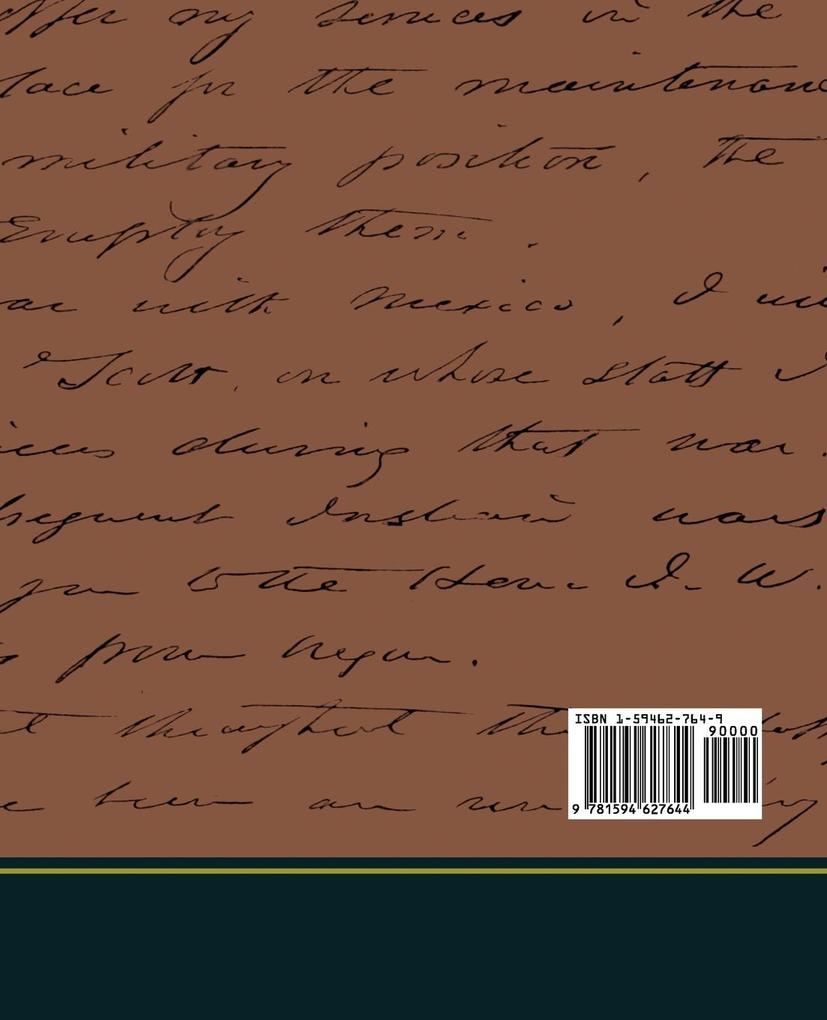 offer my services in the
place for the maintenance
military position, the
Employ them.
war with Mexico, I
Scott, on whose staff I
during that war.
wars
to the Hon. I. W.
began.
throughout the
been an
ISBN 1-59462-764-9
90000
9 781594 627644